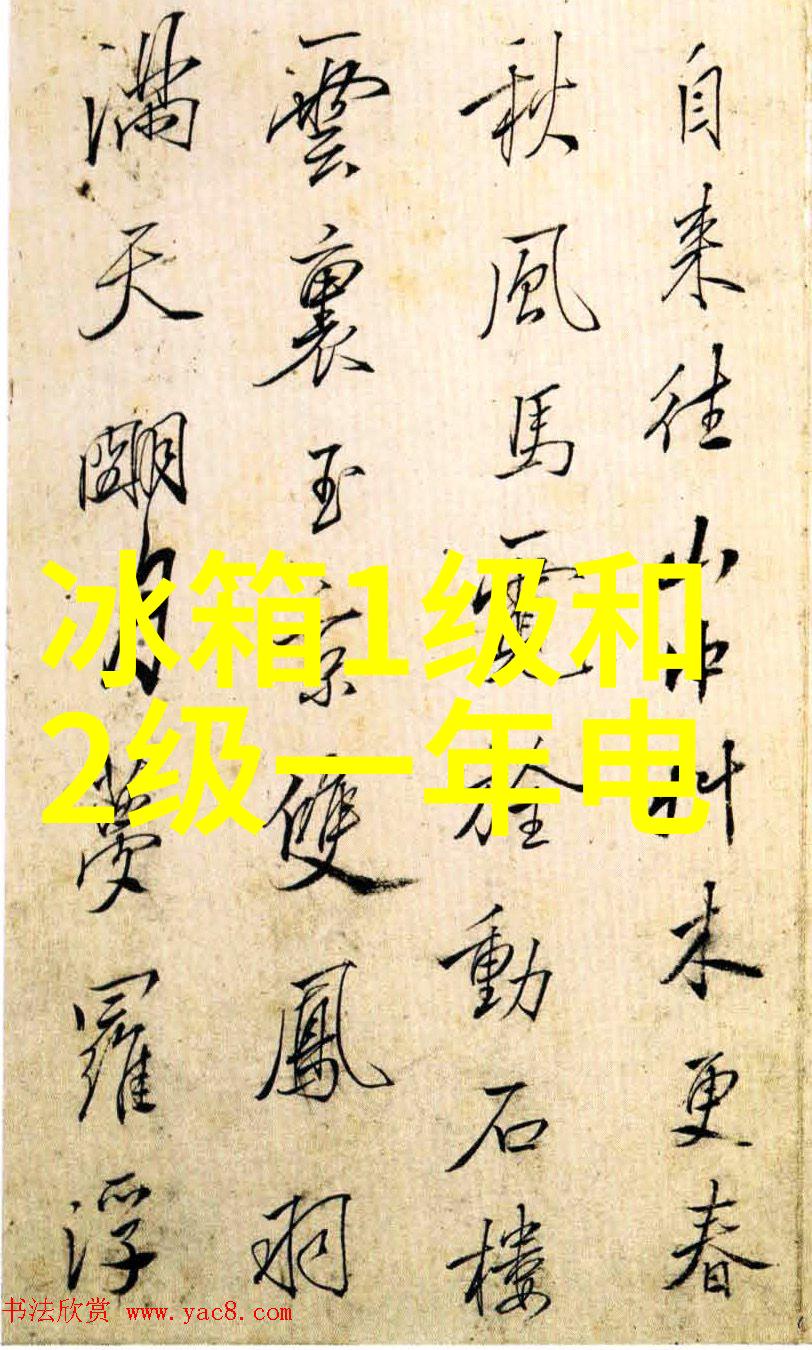 自来往山中米更春
秋風馬霓旌動石樓
雲裏玉京雙鳳
滿天月夢羅浮
冰箱1级和
2级一年电
书法欣赏 www.yac8.com